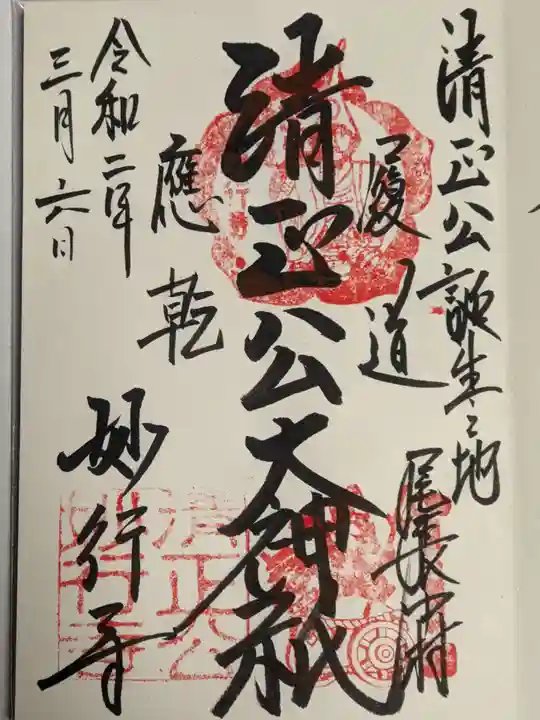 清正公誕生之地
尾張中村
履道
清正公大神祇
應乾
令和二年
三月六日
妙行寺
清正公
妙行寺